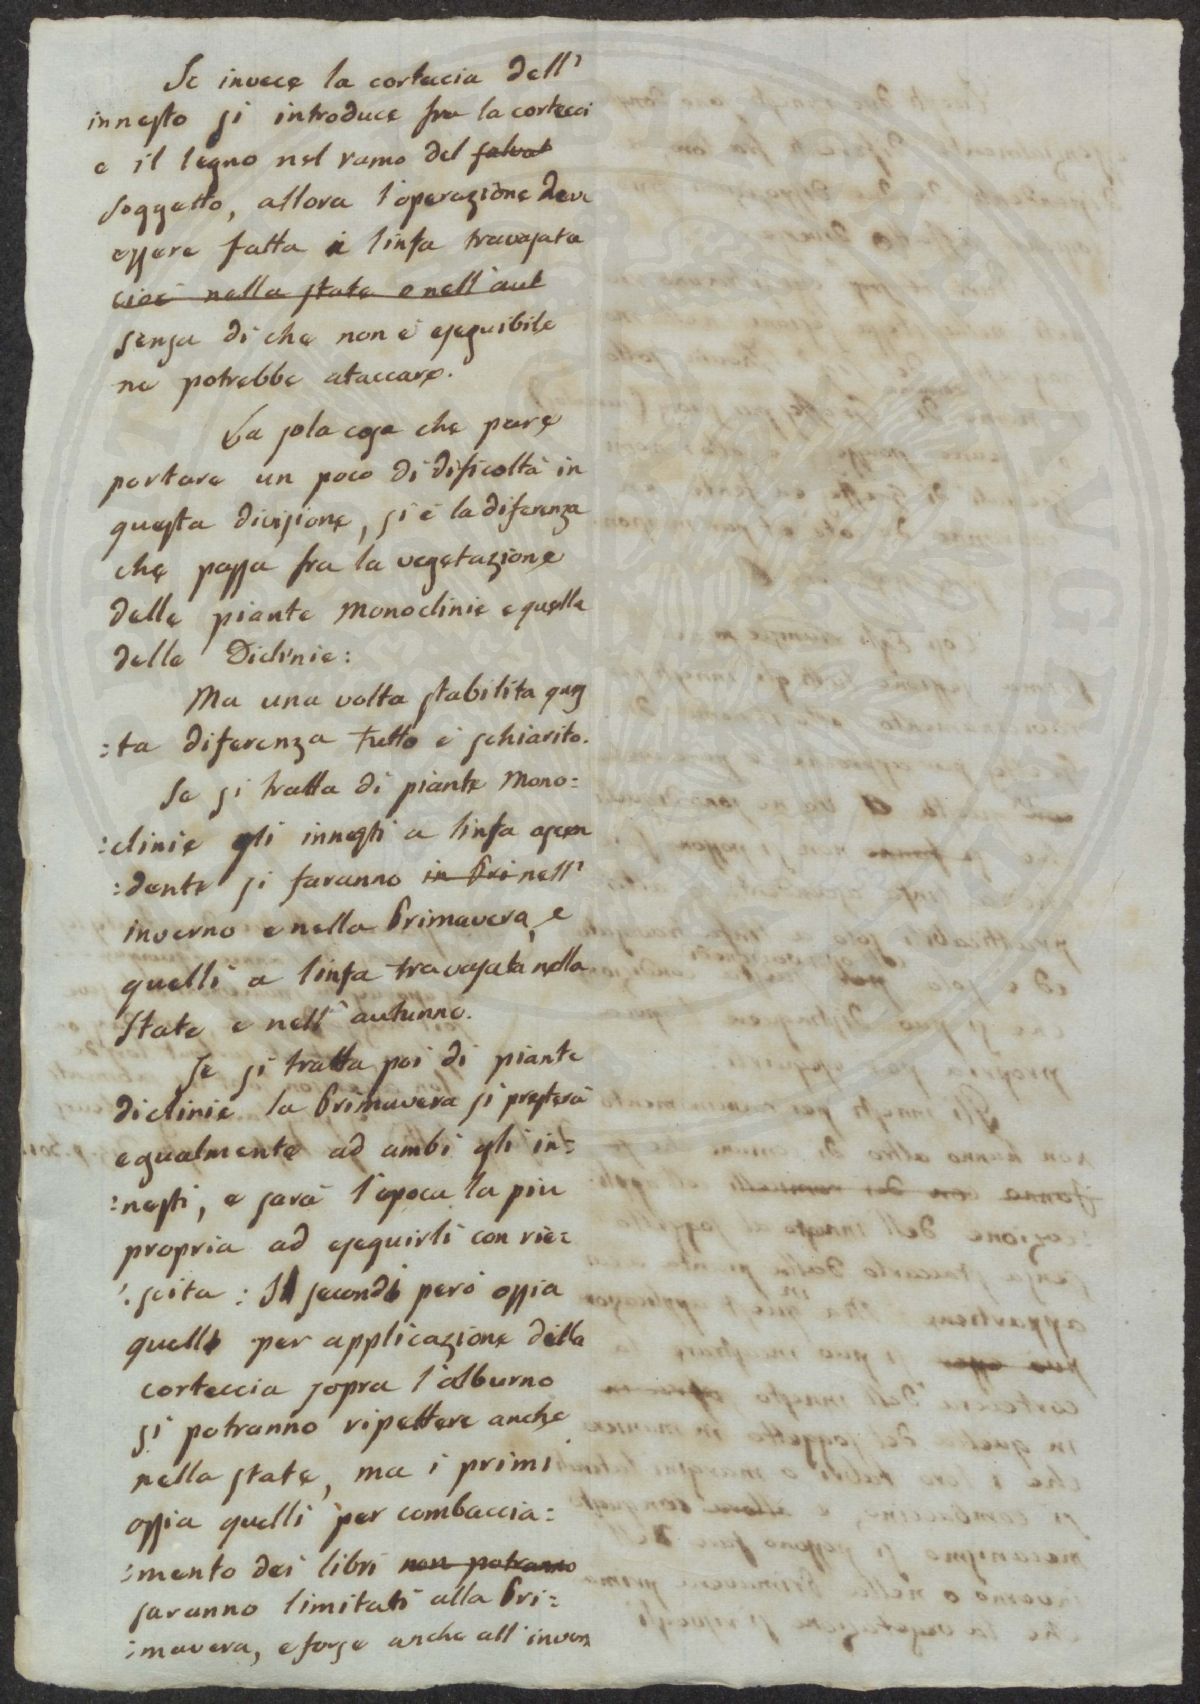 Se invece la corteccia dell'
innesto si introduce fra la cortecci
e il legno nel ramo del salvat
soggetto, allora l'operazione deve
essere fatta a linfa travasata
cioè nella state e nell'aut
senza di che non è eseguibile
ne potrebbe ataccare.
La sola cosa che pare
portare un poco di dificoltà in
questa divisione, si è la diferenza
che passa fra la vegetazione
delle piante Monoclinie e quella
delle Diclinie:
Ma una volta stabilita ques
:ta diferenza tutto è schiarito.
Se si tratta di piante Mono=
:clinie gli innesti a linfa ascen
:dente si faranno in Pri nell'
inverno e nella Primavera, e
quelli a linfa travasata nella
state e nell'autunno.
Se si tratta poi di piante
diclinie la Primavera si presterà
egualmente ad ambi gli in=
:nesti, e sarà l'epoca la più
propria ad eseguirli con rie=
:scita: I secondi però ossia
quelli per applicazione della
corteccia sopra l'alburno
si potranno ripettere anche
nella state, ma i primi
ossia quelli per combaccia=
:mento dei libri non potranno
saranno limitati alla Pri=
:mavera, e forse anche all'inver